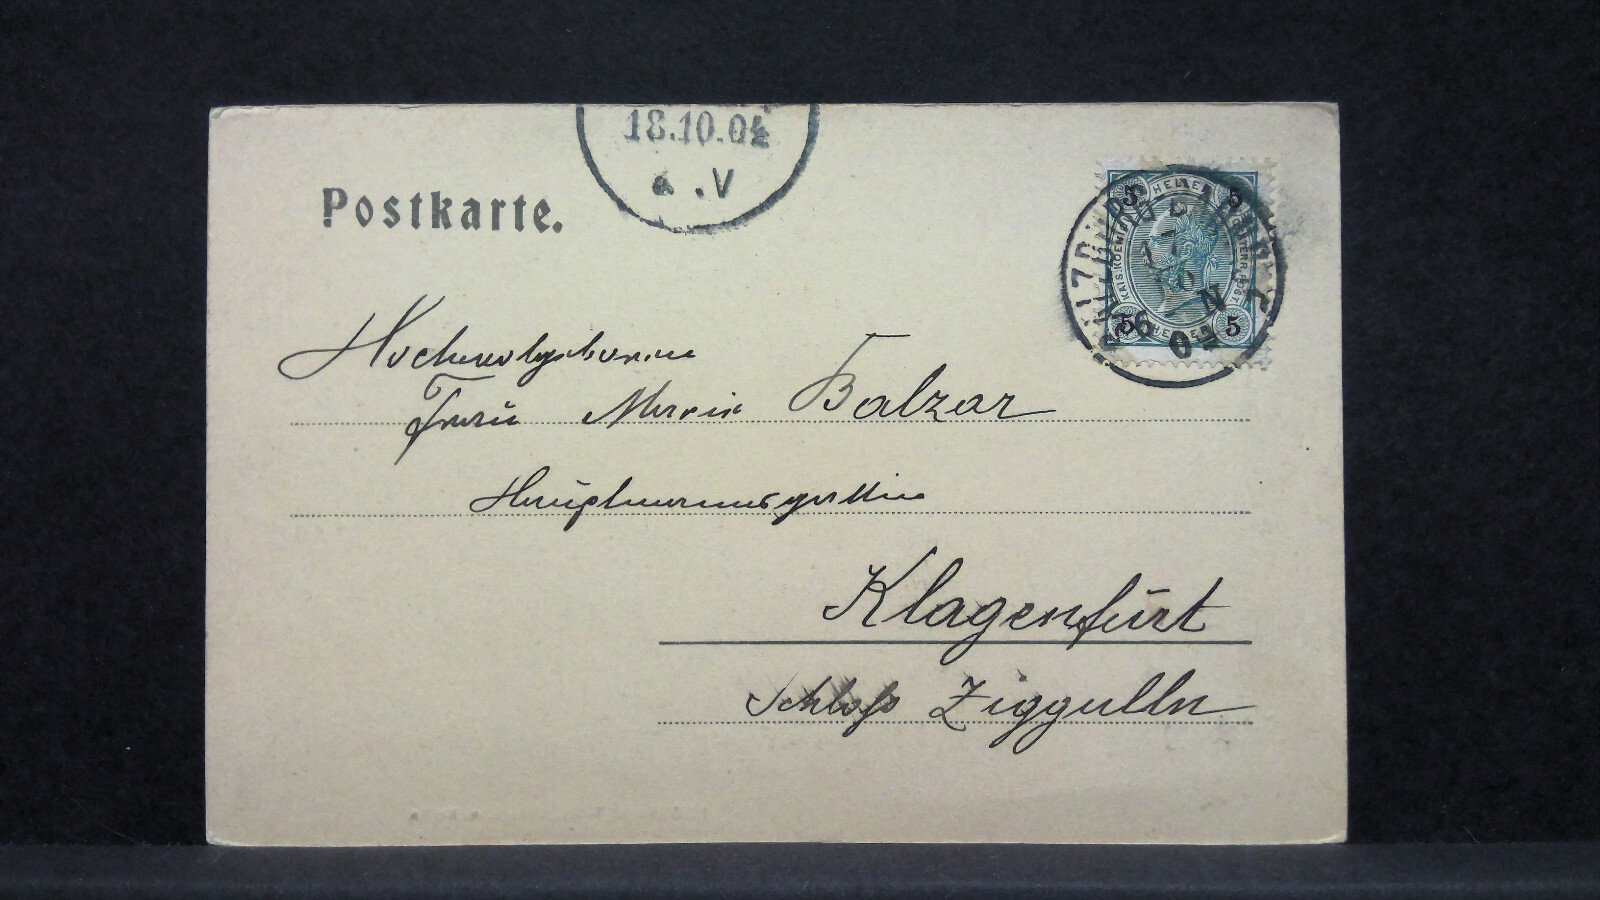 18.10.04
a .V
Postkarte.
5 HELLER 5
KAIS. KOENIGL. OESTERR. POST.
5 HELLER 5
17
10
6 N
04
Hochwolgeboren
Frau Maria Balzar
Hauptmannsgattin
Klagenfurt
Schloß Ziggulln